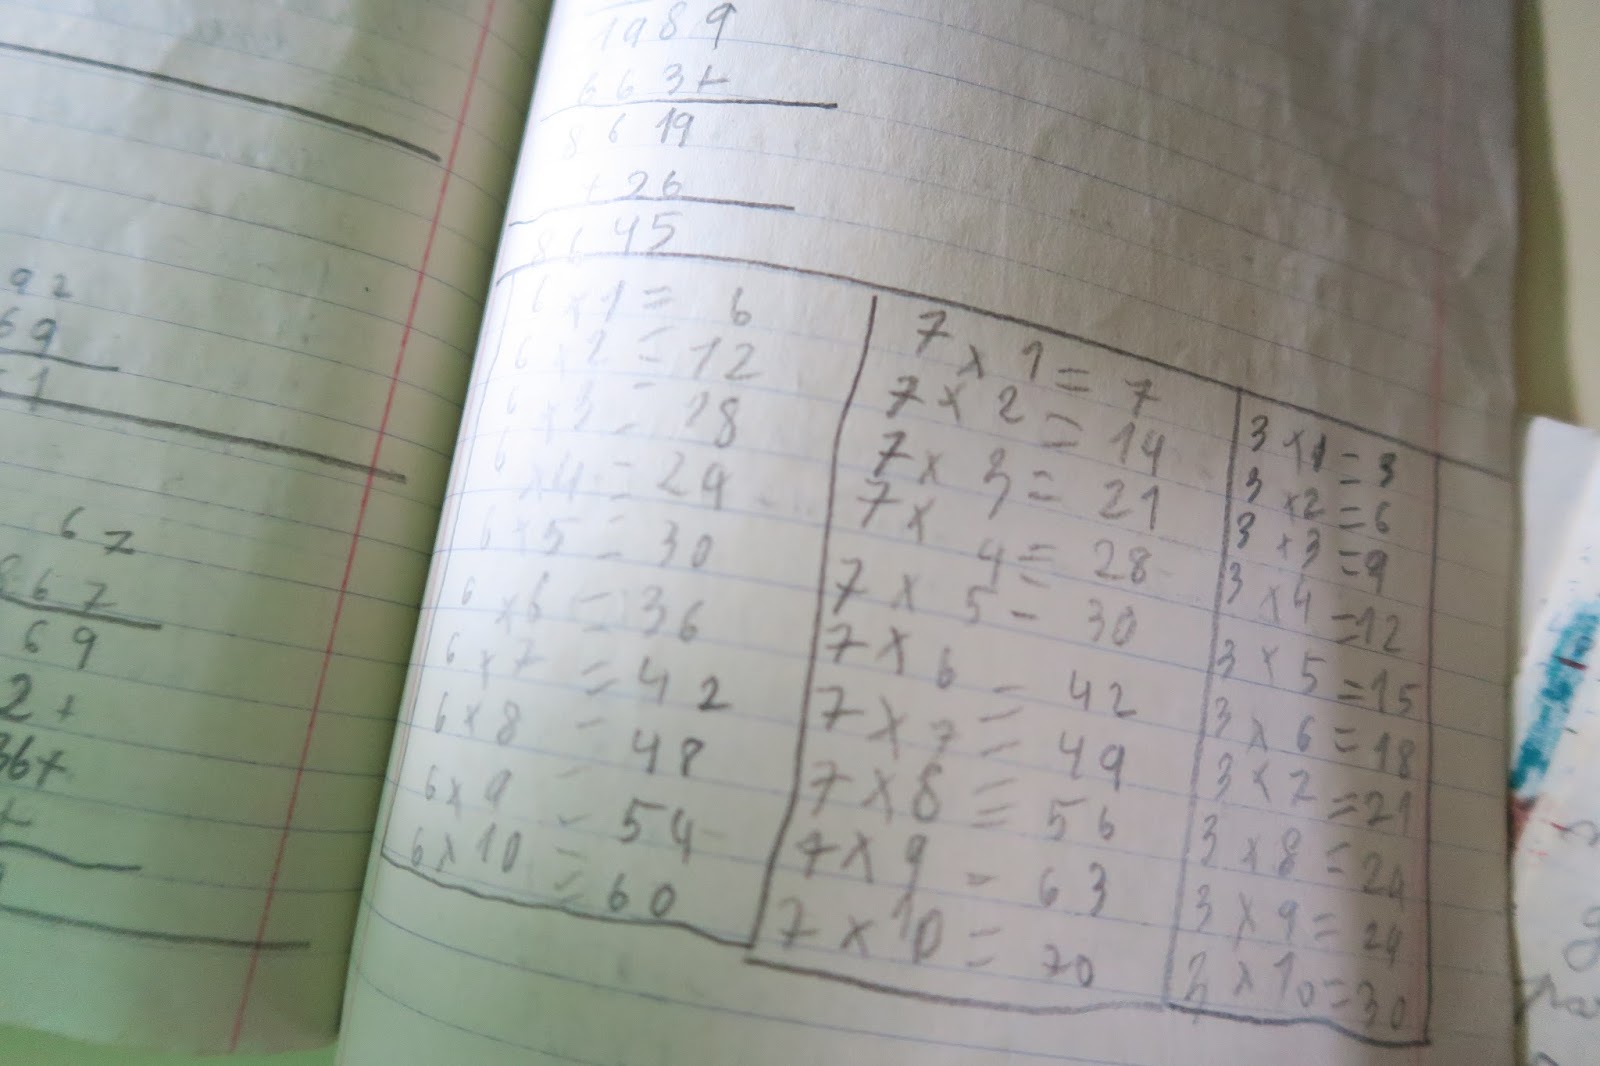 92
69
67
867
69
2+
36+
1989
663+
8619
+26
8645
6 x 1 = 6
6 x 2 = 12
6 x 3 = 18
6 x 4 = 24
6 x 5 = 30
6 x 6 = 36
6 x 7 = 42
6 x 8 = 48
6 x 9 - 54
6 x 10 = 60
7 x 1 = 7
7 x 2 = 14
7 x 3 = 21
7 x 4 = 28
7 x 5 - 30
7 x 6 = 42
7 x 7 = 49
7 x 8 = 56
7 x 9 - 63
7 x 10 = 70
3 x 1 = 3
3 x 2 = 6
3 x 3 = 9
3 x 4 = 12
3 x 5 = 15
3 x 6 = 18
3 x 7 = 21
3 x 8 = 24
3 x 9 = 24
3 x 10 = 30